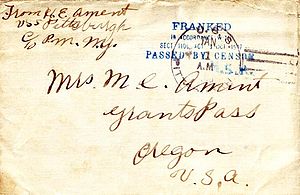 From H. E. Ament
USS Pittsburgh
C/o P.M. N.Y.
FRANKED
IN ACCORDANCE
SECT.
PASSED BY CENSOR
A.M.
Mrs. M. E. Ament
Grants Pass
Oregon
U.S.A.